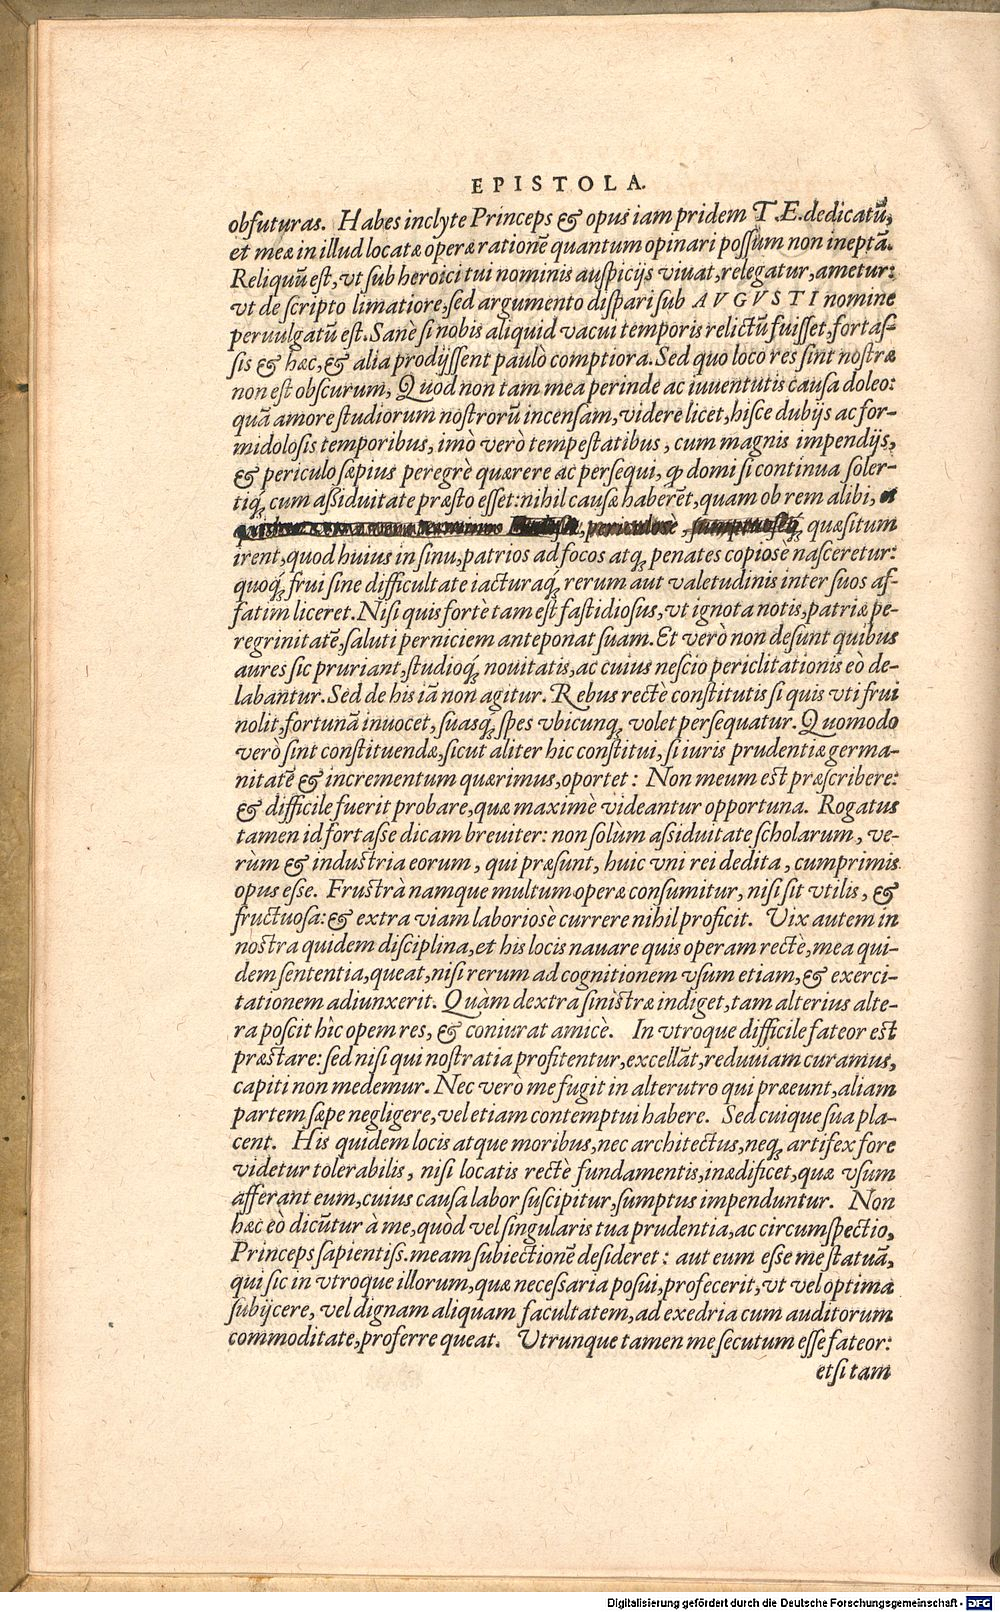 EPISTOLA.
obfuturas. Habes inclyte Princeps & opus iam pridem T.E. dedicatũ,
et meæ in illud locatæ operæ rationẽ quantum opinari possum non ineptã.
Reliquũ est, vt sub heroici tui nominis auspicijs viuat, relegatur, ametur:
vt de scripto limatiore, sed argumento dispari sub AVGVSTI nomine
peruulgatũ est. Sanè si nobis aliquid vacui temporis relictũ fuisset, fortas-
sis & hæc, & alia prodijssent paulò comptiora. Sed quo loco res sint nostræ
non est obscurum, Quod non tam mea perinde ac iuuentutis causa doleo:
quã amore studiorum nostrorũ incensam, videre licet, hisce dubijs ac for-
midolosis temporibus, imò verò tempestatibus, cum magnis impendijs,
& periculo sæpius peregrè quærere ac persequi, ꝙ domi si continua soler-
tiaꝗ́ cum aßiduitate præsto esset: nihil causæ haberẽt, quam ob rem alibi, et
periculose, sumptuoseꝗ́, quæsitum
irent, quod huius in sinu, patrios ad focos atꝗ́ penates copiose nasceretur:
quoꝗ́ frui sine difficultate iacturaꝗ́ rerum aut valetudinis inter suos af-
fatim liceret. Nisi quis fortè tam est fastidiosus, vt ignota notis, patriæ pe-
regrinitatẽ, saluti perniciem anteponat suam. Et verò non desunt quibus
aures sic pruriant, studioꝗ́ nouitatis, ac cuius nescio periclitationis eò de-
labantur. Sed de his iã non agitur. Rebus rectè constitutis si quis vti frui
nolit, fortunã inuocet, suasꝗ́ spes vbicunꝗ́ volet persequatur. Quomodo
verò sint constituendæ, sicut aliter hic constitui, si iuris prudentiæ germa-
nitatẽ & incrementum quærimus, oportet: Non meum est præscribere:
& difficile fuerit probare, quæ maximè videantur opportuna. Rogatus
tamen id fortasse dicam breuiter: non solùm aßiduitate scholarum, ve-
rùm & industria eorum, qui præsunt, huic vni rei dedita, cumprimis
opus esse. Frustrà namque multum operæ consumitur, nisi sit vtilis, &
fructuosa: & extra viam laboriosè currere nihil proficit. Vix autem in
nostra quidem disciplina, et his locis nauare quis operam rectè, mea qui-
dem sententia, queat, nisi rerum ad cognitionem vsum etiam, & exerci-
tationem adiunxerit. Quàm dextra sinistræ indiget, tam alterius alte-
ra poscit hìc opem res, & coniurat amicè. In vtroque difficile fateor est
præstare: sed nisi qui nostratia profitentur, excellãt, reduuiam curamus,
capiti non medemur. Nec verò me fugit in alterutro qui præeunt, aliam
partem sæpe negligere, vel etiam contemptui habere. Sed cuique sua pla-
cent. His quidem locis atque moribus, nec architectus, neꝗ́ artifex fore
videtur tolerabilis, nisi locatis rectè fundamentis, inædificet, quæ vsum
afferant eum, cuius causa labor suscipitur, sumptus impenduntur. Non
hæc eò dicũtur à me, quòd vel singularis tua prudentia, ac circumspectio,
Princeps sapientiss. meam subiectionẽ desideret: aut eum esse me statuã,
qui sic in vtroque illorum, quæ necessaria posui, profecerit, vt vel optima
subijcere, vel dignam aliquam facultatem, ad exedria cum auditorum
commoditate, proferre queat. Vtrunque tamen me secutum esse fateor:
etsi tam
Digitalisierung gefördert durch die Deutsche Forschungsgemeinschaft - DFG